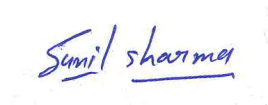 Sunil Sharma